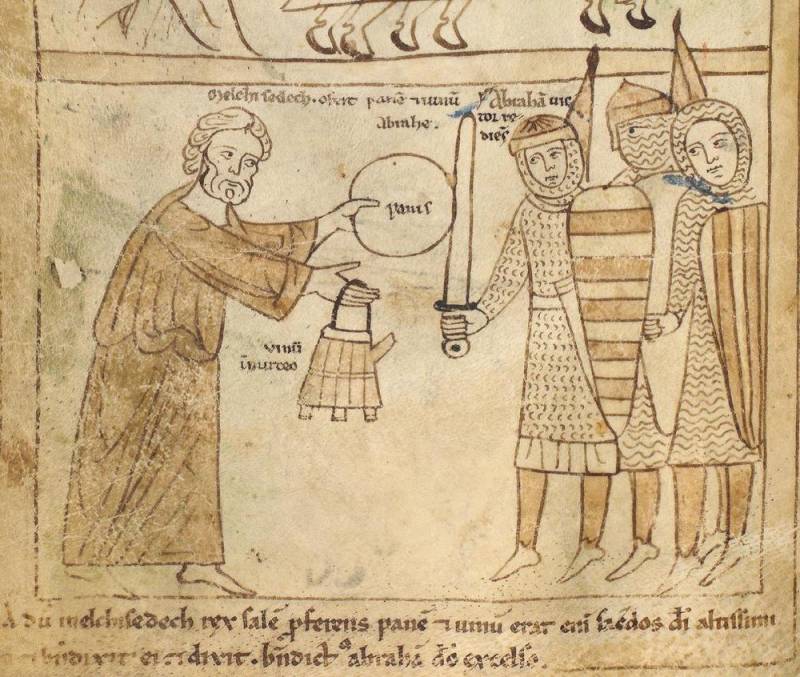 Melchisedech · ofert panē ⁊ uinū
Abrahe·
Abrahā uic
tor re
diēs
panis
vinū
ī urceo
A dū melchisedech rex salē pferens panē ⁊ uinū erat eni sacdos di altissimi
bndixit ei ⁊ dixit · bndict⁹ abrahā dō excelso ·